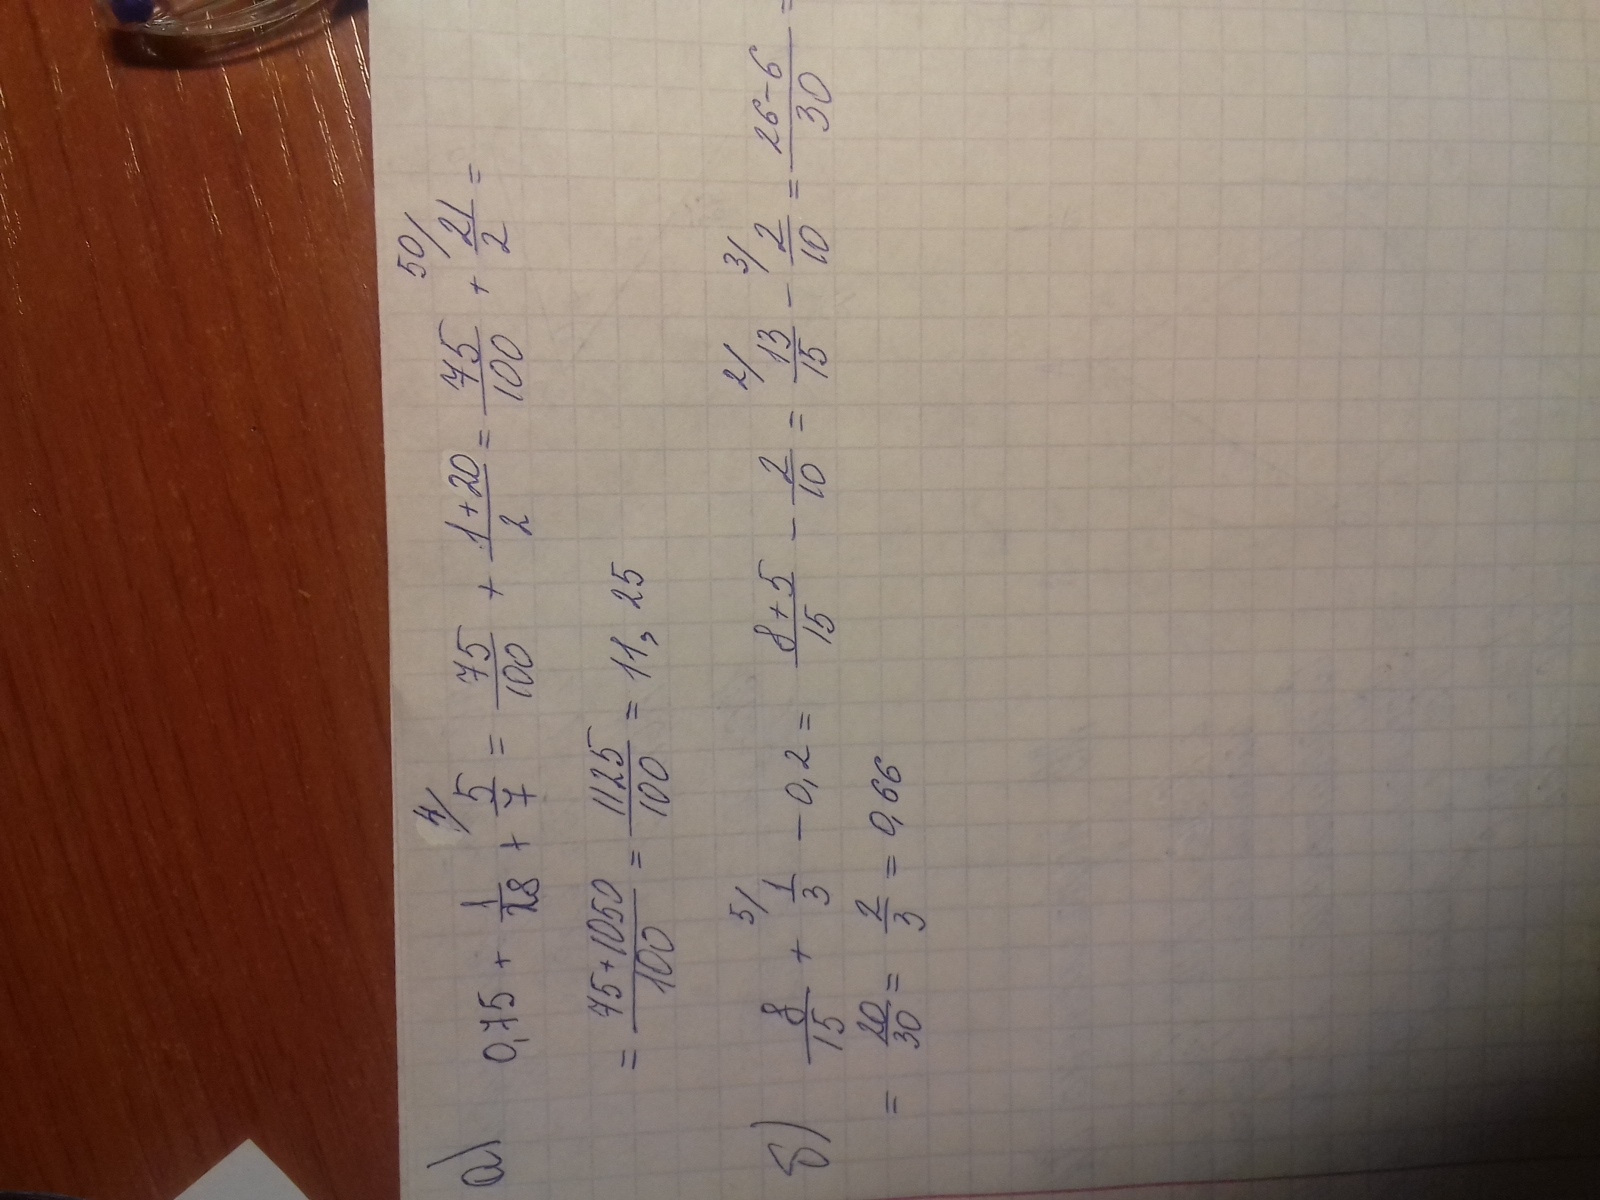 а) 0,75 + 1/28 + 4/ 5/7 = 75/100 + 1+20/2 = 75/100 + 50/ 21/2 =
= 75+1050/100 = 1125/100 = 11,25
б) 8/15 + 5/ 1/3 - 0,2 = 8+5/15 - 2/10 = 2/ 13/15 - 3/ 2/10 = 26-6/30 =
= 20/30 = 2/3 = 0,66